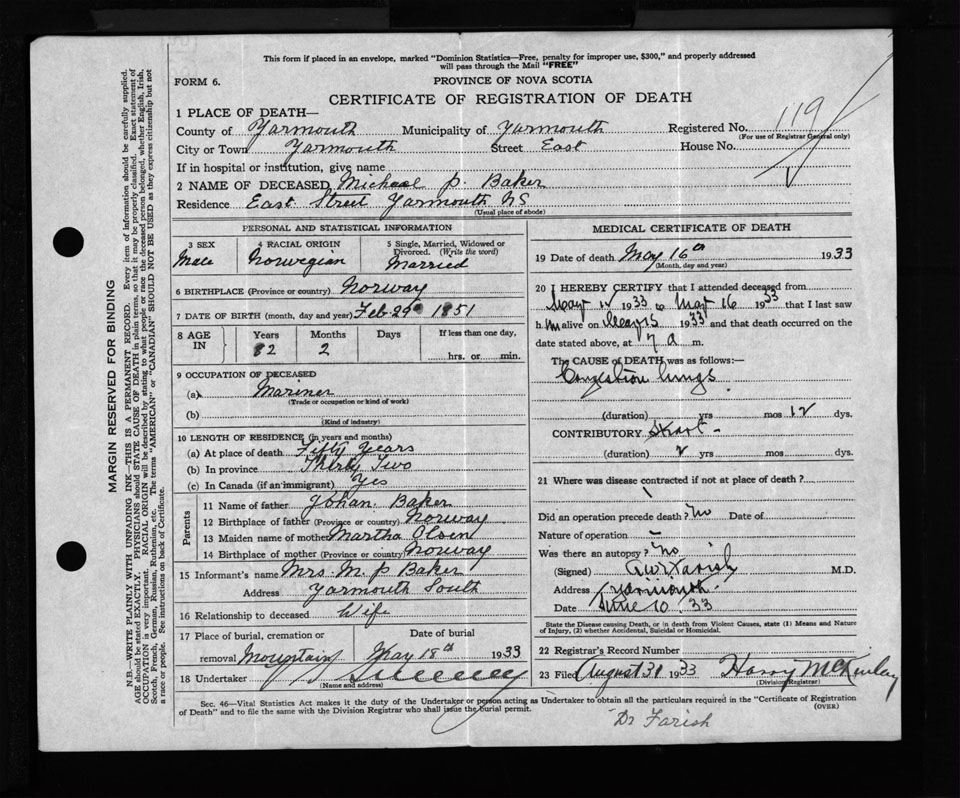 This form if placed in an envelope, marked "Dominion Statistics—Free, penalty for improper use, $300," and properly addressed
will pass through the Mail "FREE"
FORM 6.
PROVINCE OF NOVA SCOTIA
CERTIFICATE OF REGISTRATION OF DEATH
1 PLACE OF DEATH—
County of Yarmouth Municipality of Yarmouth Registered No. 119
(For use of Registrar General only)
City or Town Yarmouth Street East House No.
If in hospital or institution, give name
2 NAME OF DECEASED Michael P. Baker
Residence East Street Yarmouth NS
(Usual place of abode)
PERSONAL AND STATISTICAL INFORMATION
3 SEX 4 RACIAL ORIGIN 5 Single, Married, Widowed or Divorced. (Write the word)
Male Norwegian Married
6 BIRTHPLACE (Province or country) Norway
7 DATE OF BIRTH (month, day and year) Feb 29 1851
8 AGE IN Years Months Days If less than one day,
82 2 hrs. or min.
9 OCCUPATION OF DECEASED
(a) Mariner
(Trade or occupation or kind of work)
(b)
(Kind of industry)
10 LENGTH OF RESIDENCE (in years and months)
(a) At place of death Fifty Years
(b) In province Thirty Two
(c) In Canada (if an immigrant) Yes
Parents
11 Name of father Johan. Baker
12 Birthplace of father (Province or country) Norway
13 Maiden name of mother Martha Olsen
14 Birthplace of mother (Province or country) Norway
15 Informant's name Mrs. M. P Baker
Address Yarmouth South
16 Relationship to deceased Wife
17 Place of burial, cremation or removal Mountain
Date of burial May 18th 1933
18 Undertaker
(Name and address)
MEDICAL CERTIFICATE OF DEATH
19 Date of death May 16th 1933
(Month, day and year)
20 I HEREBY CERTIFY that I attended deceased from
May 12 1933 to May 16 1933 that I last saw
him alive on May 15 1933 and that death occurred on the
date stated above, at 7 a m.
The CAUSE OF DEATH was as follows:—
Congestion lungs
(duration) yrs mos 12 dys.
CONTRIBUTORY Heart
(duration) 2 yrs mos dys.
21 Where was disease contracted if not at place of death?
Did an operation precede death? No Date of
Nature of operation
Was there an autopsy? No
(Signed) Farish M.D.
Address Yarmouth
Date June 10. 33
State the Disease causing Death, or in death from Violent Causes, state (1) Means and Nature
of Injury, (2) whether Accidental, Suicidal or Homicidal.
22 Registrar's Record Number
23 Filed August 31 1933 Harry McKinlay
(Division Registrar)
Sec. 46—Vital Statistics Act makes it the duty of the Undertaker or person acting as Undertaker to obtain all the particulars required in the "Certificate of Registration
of Death" and to file the same with the Division Registrar who shall issue the burial permit.
(OVER)
Dr Farish
MARGIN RESERVED FOR BINDING
N.B.—WRITE PLAINLY WITH UNFADING INK—THIS IS A PERMANENT RECORD. Every item of information should be carefully supplied.
AGE should be stated EXACTLY. PHYSICIANS should STATE CAUSE OF DEATH in plain terms, so that it may be properly classified. Exact statement of
OCCUPATION is very important. RACIAL ORIGIN will be described by stating to what people or race the deceased person belonged, whether English, Irish,
Scotch, French, German, Russian, Ruthenian, etc. The terms "AMERICAN" or "CANADIAN" SHOULD NOT BE USED as they express citizenship but not
a race or people. See instructions on back of Certificate.